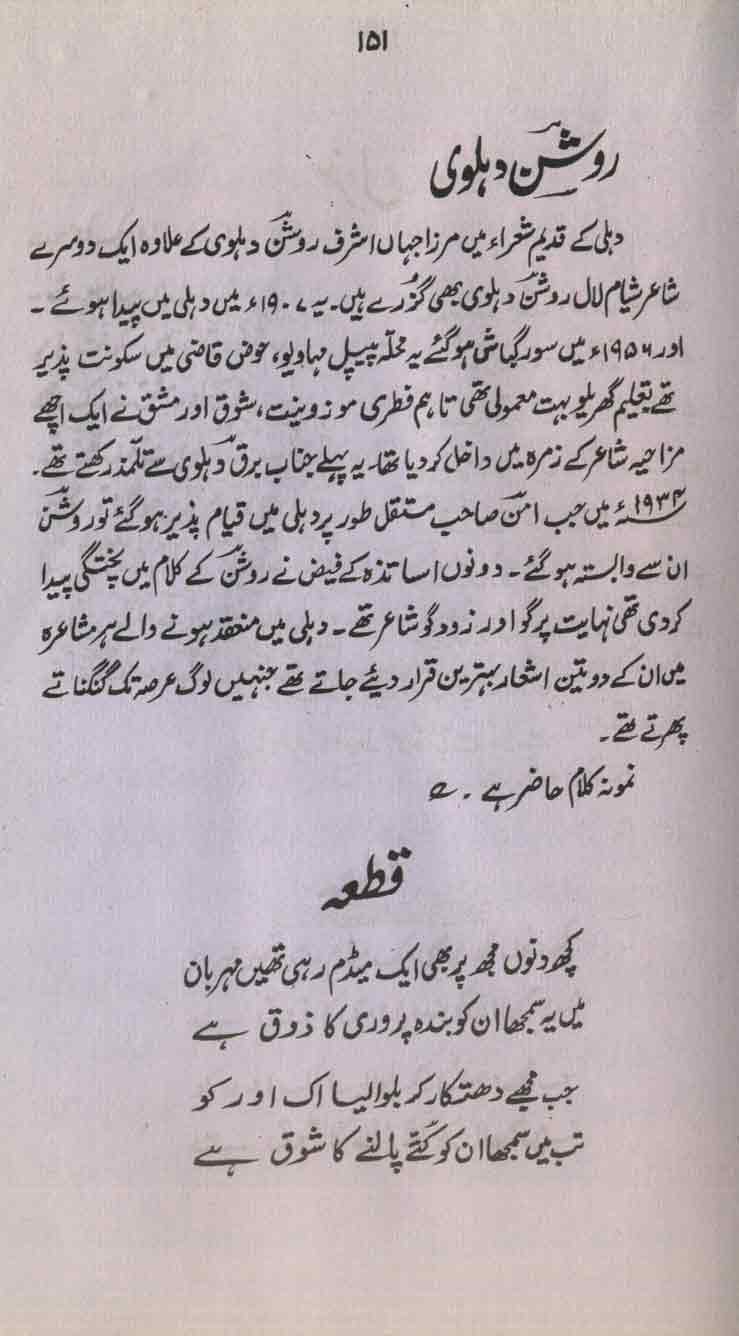 ۱۵۱
روشن دہلوی
دہلی کے قدیم شعراء میں مرزا جہاں اشرف روشن دہلوی کے علاوہ ایک دوسرے
شاعر شیام لال روشن دہلوی بھی گزرے ہیں۔ یہ ۱۹۰۷ء میں دہلی میں پیدا ہوئے۔
اور ۱۹۵۶ء میں سورگباشی ہوگئے یہ محلہ پیپل مہادیو، حوض قاضی میں سکونت پذیر
تھے تعلیم گھریلو بہت معمولی تھی تاہم فطری موزونیت، شوق اور مشق نے ایک اچھے
مزاحیہ شاعر کے زمرہ میں داخل کردیا تھا۔ یہ پہلے جناب برق دہلوی سے تلمذ رکھتے تھے۔
۱۹۳۴ء میں جب امن صاحب مستقل طور پر دہلی میں قیام پذیر ہوگئے تو روشن
ان سے وابستہ ہوگئے۔ دونوں اساتذہ کے فیض نے روشن کے کلام میں پختگی پیدا
کردی تھی نہایت پرگو اور زودگو شاعر تھے۔ دہلی میں منعقد ہونے والے ہر مشاعرہ
میں ان کے دو تین اشعار بہترین قرار دیئے جاتے تھے جنہیں لوگ عرصہ تک گنگناتے
پھرتے تھے۔
نمونہ کلام حاضر ہے۔ ؎
قطعہ
کچھ دنوں مجھ پر بھی ایک میڈم رہی تھیں مہربان
میں یہ سمجھا ان کو بندہ پروری کا ذوق ہے
جب مجھے دھتکار کر بلوا لیا اک اور کو
تب میں سمجھا ان کو کُتّے پالنے کا شوق ہے